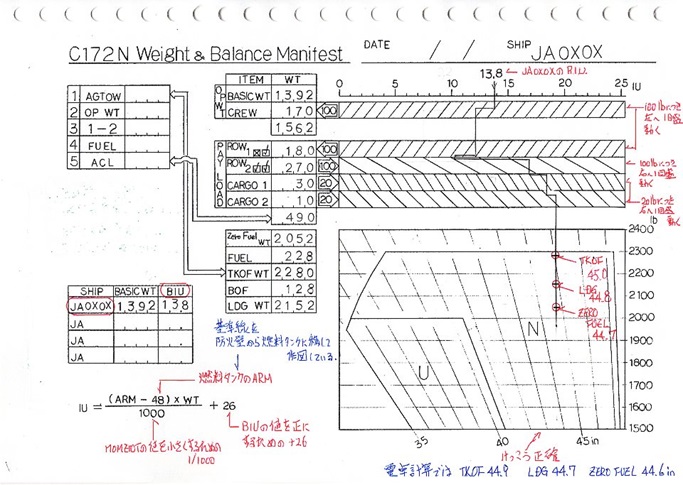 C172N Weight & Balance Manifest
DATE / / SHIP JA0X0X
13.8 ← JA0X0XのBIU
ITEM WT
0 5 10 15 20 25 IU
OPWT
BASIC WT 1,3,9,2
CREW 1,7,0 100
1,5,6,2
1 AGTOW
2 OP WT
3 1-2
4 FUEL
5 ACL
100lbにつき
左へ1目盛
動く
PAYLOAD
ROW1 1,8,0 100
ROW2 2,7,0 100
CARGO 1 3,0 20
CARGO 2 1,0 20
4,9,0
100lbにつき
右へ1目盛
動く
20lbにつき
右へ1目盛
動く
lb
Zero Fuel WT 2,0,5,2
FUEL 2,2,8
TKOF WT 2,2,8,0
BOF 1,2,8
LDG WT 2,1,5,2
2400
2300
2200
2100
2000
1900
1800
1700
1600
1500
TKOF
45.0
LDG
44.8
ZERO
FUEL
44.7
N
U
SHIP BASIC WT BIU
JA0X0X 1,3,9,2 1,3,8
JA
JA
JA
基準線を
防火壁から燃料タンクに移して
作図している.
燃料タンクのARM
IU = (ARM - 48) × WT / 1000 + 26
BIUの値を正に
するための+26
MOMENTの値を小さくするための
1/1000
35 40 45 in
けっこう正確
電卓計算では TKOF 44.9 LDG 44.7 ZERO FUEL 44.6 in